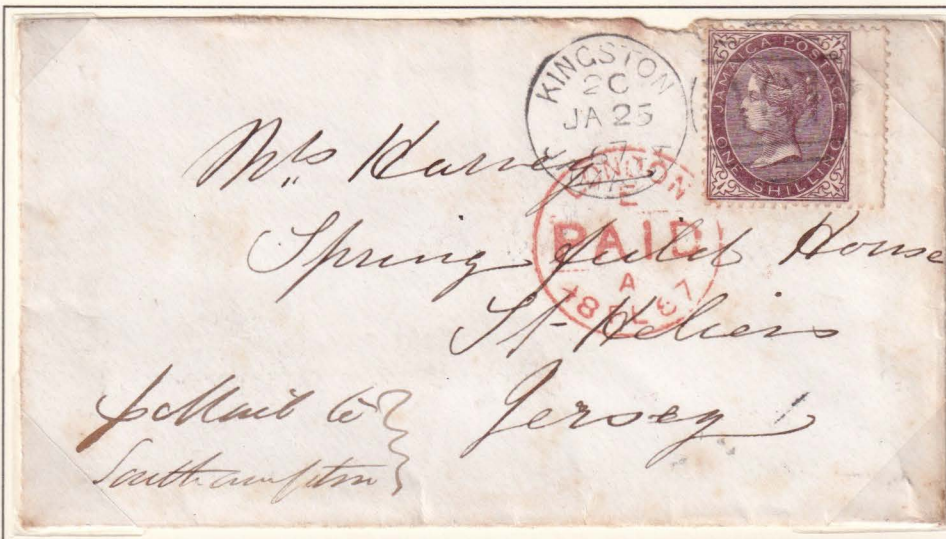 KINGSTON
2C
JA 25
67
JAMAICA POSTAGE
ONE SHILLING
LONDON
E
PAID
A
18 FE 67
Mrs Harvey
Springfield House
St Heliers
Jersey
p Mail to
Southampton